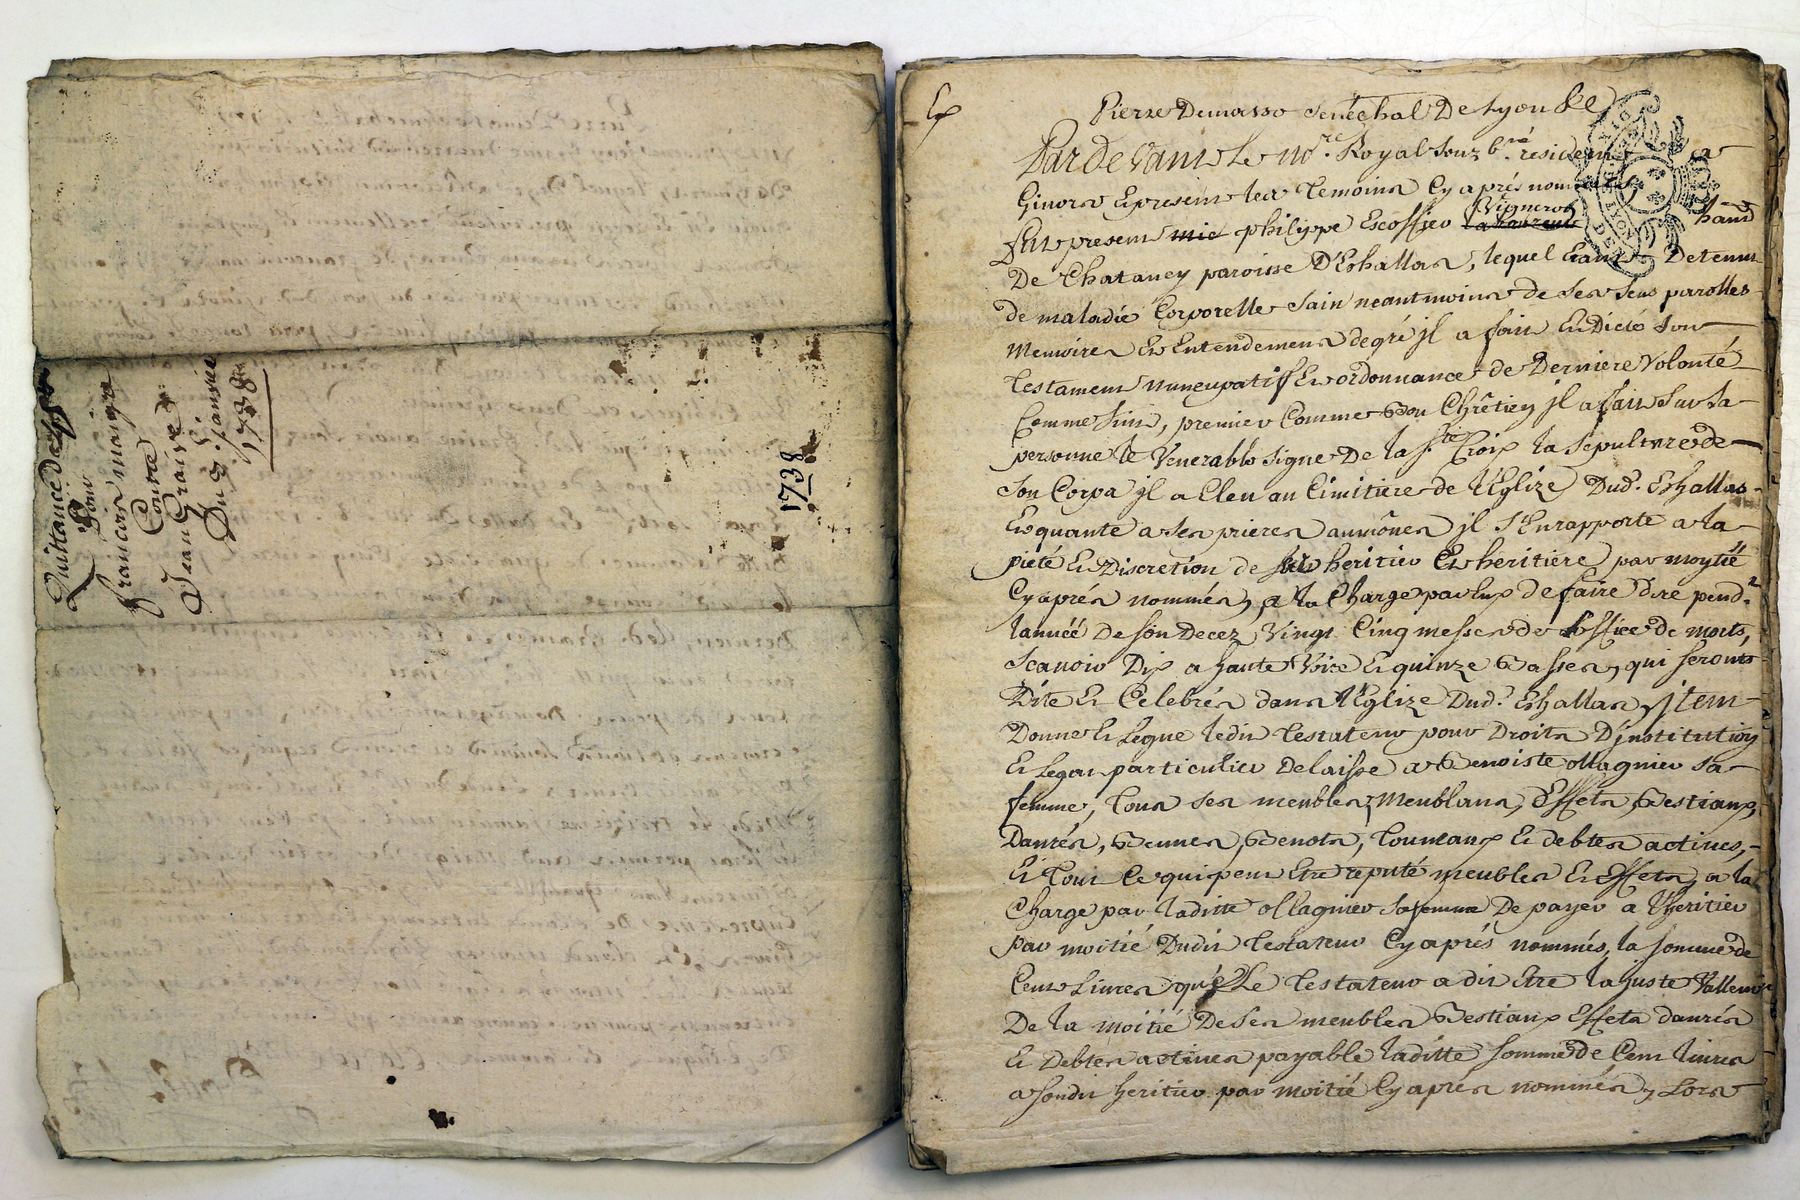 Quittance de
Pour
francois maigre
Contre
Jean Graive
Du 8e. janvier
1738
1738
Pierre Demasso senéchal De Lyon &c
Par devant Le no.re Royal souz b.né résident a
Givors Et present les temoins Cy aprés nommés
fut present mic philippe Escoffier la Laurent Vigneron hand
De Chataney paroisse D'Eshallas, lequel Etant Detenu
de maladie Corporelle sain neantmoins de ses sens parolles
memoires Et Entendement de gré jl a fait Et Dicté son
testament nuncupatif Et ordonnance de Derniere Volonté
Comme suit, premier Comme Bon Chrêtien jl a fait sur sa
personne le Venerable signe De la Ste Croix la sepulture de
son Corps jl a Eleu au Cimitiere de l'Eglize Dud. Eshallas
Et quante a ses prieres aumônes jl s'En rapporte a la
pieté Et Discretion de ses heritier Et heritiere par moytié
Cy apres nommés, a la Charge par Eux de faire dire pend.t
l'année De son Decez Vingt Cinq messes de L'office de morts,
scavoir Dix a haute Voice Et quinze Basses, qui seront
Dite Et Celebrés dans l'Eglize Dud. Eshallas, jtem
Donne Et Legue ledit testateur pour Droits D'jnstitution
Et Legat particulier Delaisse a Benoiste ollagnier sa
femme, tous ses meubles, Meublans, Effets, Bestiaux,
Danrés, Bennes, Benots, tonneaux Et debtes actives,
Et tout Ce qui peut Etre reputé meubles Et Effets, a la
Charge par laditte ollagnier sa femme De payer a l'heritier
par moitié Dudit testateur Cy aprés nommés, la somme de
Cent Livres qu'e Le testateur a dit Etre la juste Valleur
De la moitié De ses meubles Bestiaux Effets danrés
Et Debtes actives payable laditte somme de Cent livres
a sondit heritier par moitié Cy aprés nommés, Lors